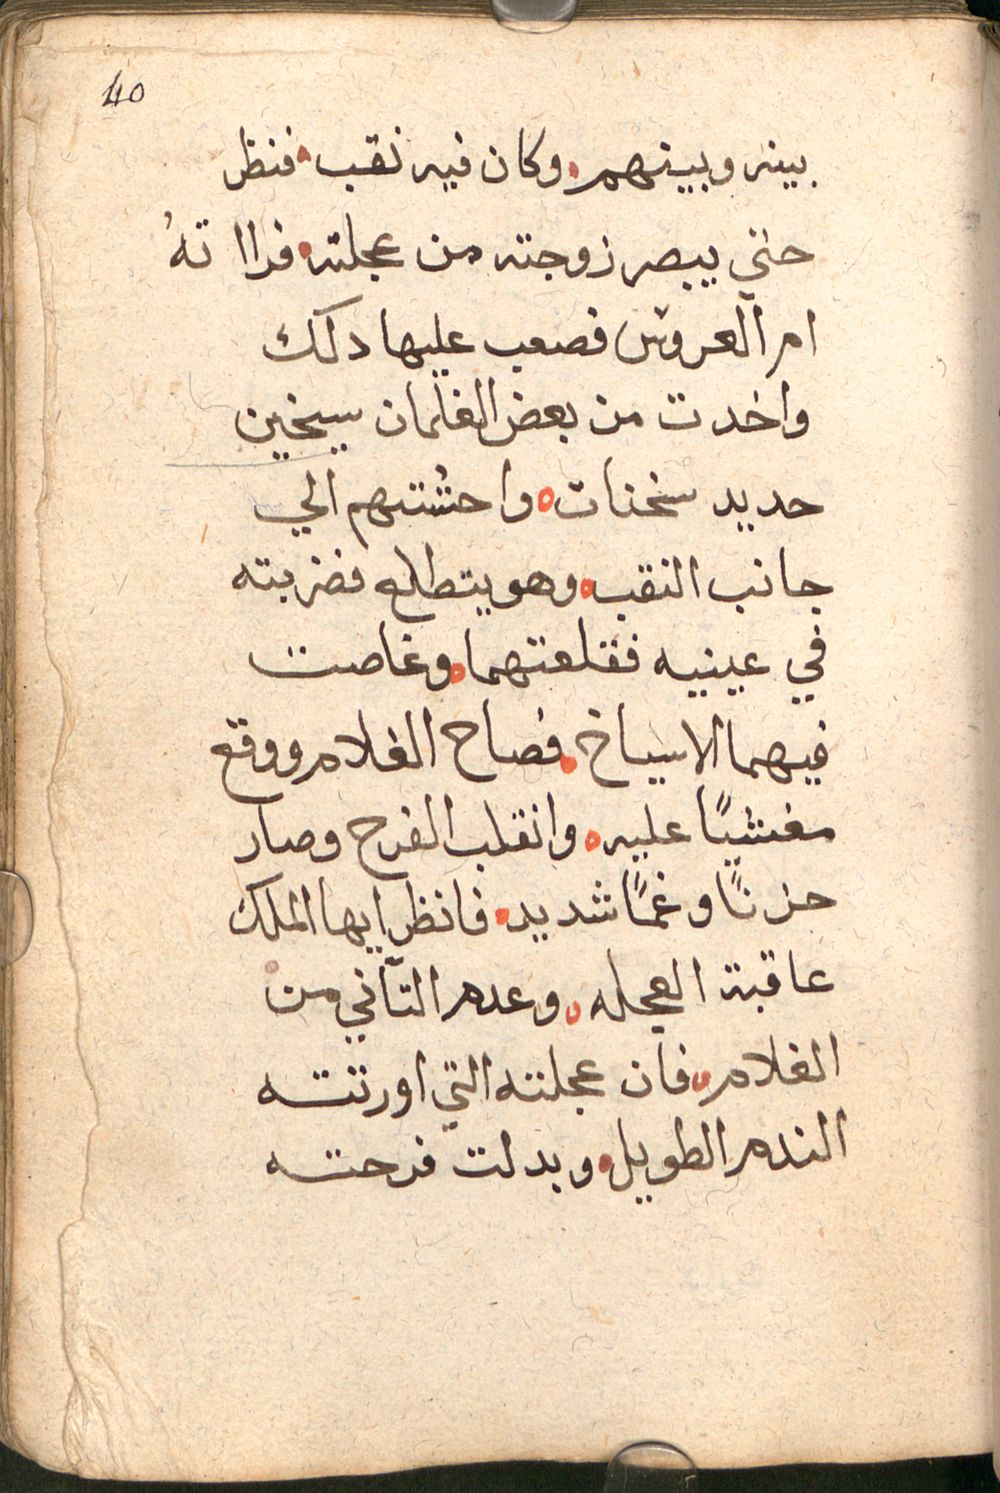 40
بينه وبينهم • وكان فيه نقب • فنظر
حتي يبصر زوجته من عجلته • فراا تهُ
ام العروس فصعب عليها دلك
واخدت من بعض الغلمان سيخين
حديد سخنات ه واحشتهم الي
جانب النقب • وهو يتطلع فضربته
في عينيه فقلعتهما • وغاصت
فيهما الاسياخ • فصاح الغلام ووقع
مغشيًا عليه ه وانقلب الفرح وصار
حزنًا وغمًا شديد • فانظر ايها الملك
عاقبة العجله • وعدم التآني من
الغلام • فان عجلته التي اورتته
الندم الطويل • وبدلت فرحته